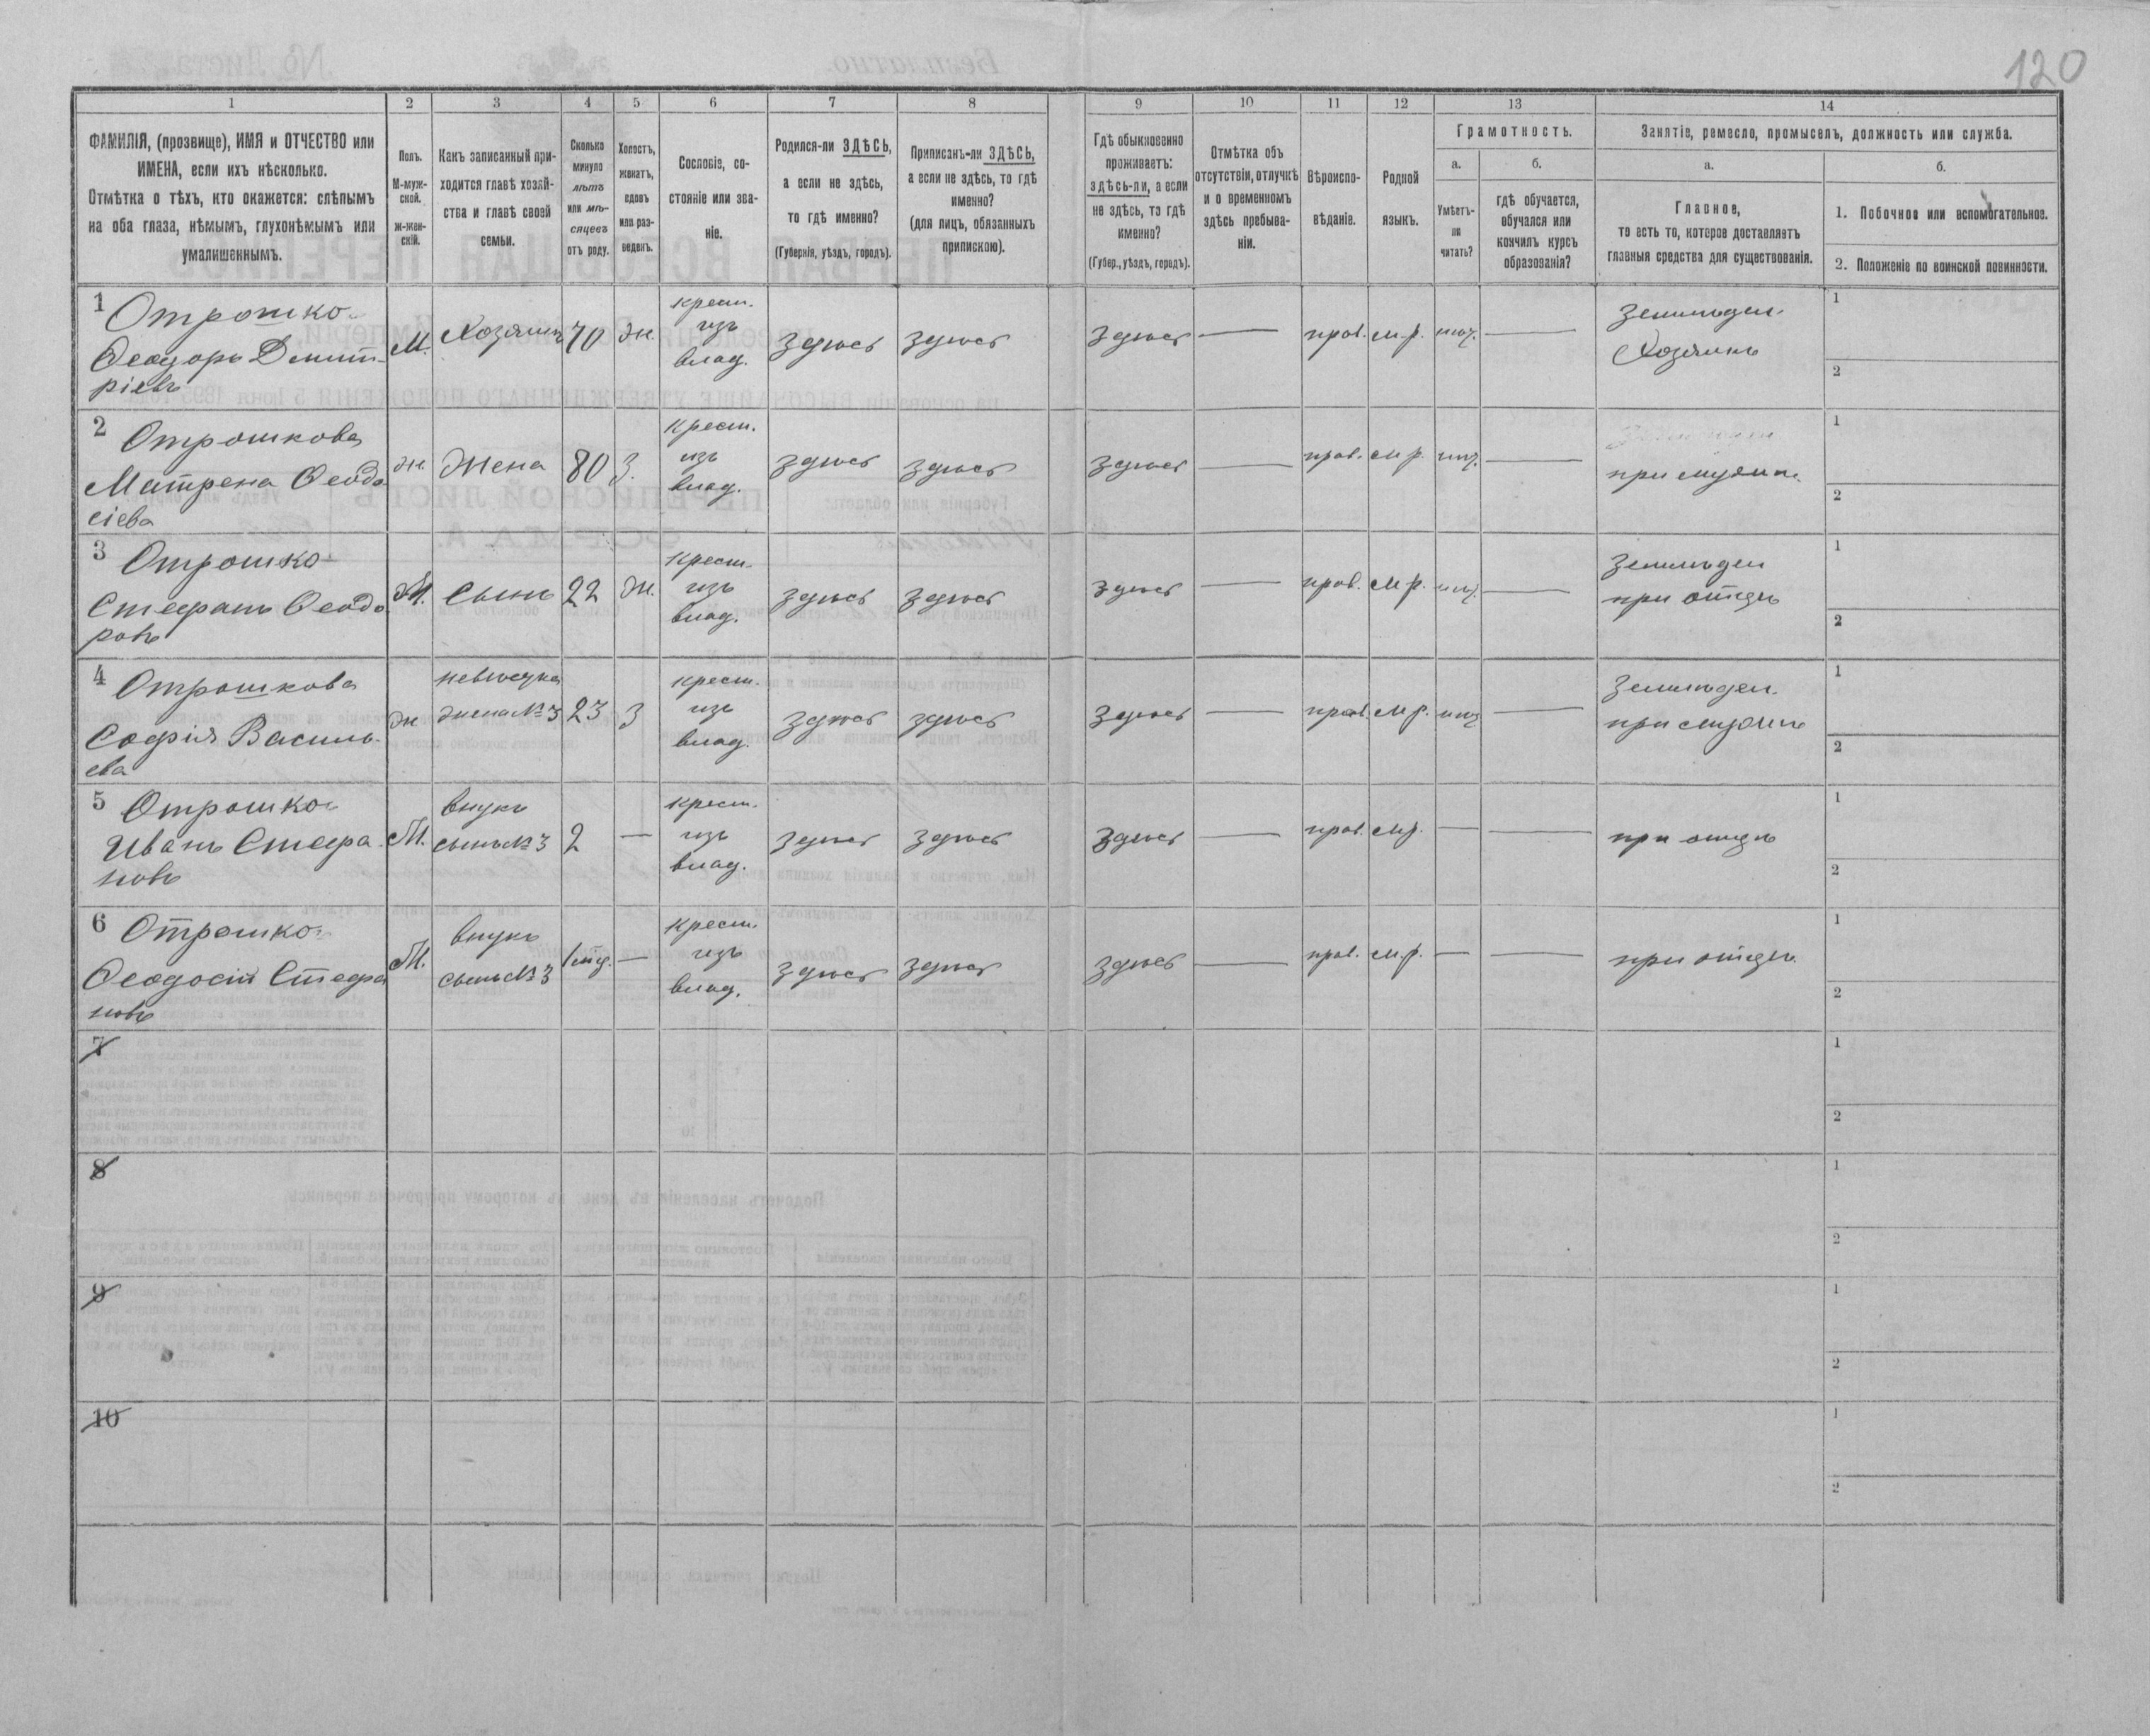 120
1 2 3 4 5 6 7 8 9 10 11 12 13 14
ФАМИЛІЯ, (прозвище), ИМЯ и ОТЧЕСТВО или
ИМЕНА, если ихъ нѣсколько.
Отмѣтка о тѣхъ, кто окажется: слѣпымъ
на оба глаза, нѣмымъ, глухонѣмымъ или
умалишеннымъ.
Полъ.
М-муж-
ской.
ж-жен-
скій.
Какъ записанный при-
ходится главѣ хозяй-
ства и главѣ своей
семьи.
Сколько
минуло
лѣтъ
или мѣ-
сяцевъ
отъ роду.
Холостъ,
женатъ,
вдовъ
или раз-
веденъ.
Сословіе, со-
стояніе или зва-
ніе.
Родился-ли ЗДѢСЬ,
а если не здѣсь,
то гдѣ именно?
(Губернія, уѣздъ, городъ).
Приписанъ-ли ЗДѢСЬ,
а если не здѣсь, то гдѣ
именно?
(для лицъ, обязанныхъ
припискою).
Гдѣ обыкновенно
проживаетъ:
здѣсь-ли, а если
не здѣсь, то гдѣ
именно?
(Губер., уѣздъ, городъ).
Отмѣтка объ
отсутствіи, отлучкѣ
и о временномъ
здѣсь пребыва-
ніи.
Вѣроиспо-
вѣданіе.
Родной
языкъ.
Грамотность.
а.
Умѣетъ-
ли
читать?
б.
гдѣ обучается,
обучался или
кончилъ курсъ
образованія?
Занятіе, ремесло, промыселъ, должность или служба.
а.
Главное,
то есть то, которое доставляетъ
главныя средства для существованія.
б.
1. Побочное или вспомогательное.
2. Положеніе по воинской повинности.
1 Отрошко
Ѳеодоръ Дмит-
ріевъ
М.
Хозяинъ
70
ж.
крест.
изъ
влад.
здѣсь
здѣсь
здѣсь
—
прав.
м.р.
нѣт.
—
Земледел.
Хозяинъ
1
2
2 Отрошкова
Матрена Ѳеодо
сіева
ж.
жена
80
з.
крест.
изъ
влад.
здѣсь
здѣсь
здѣсь
—
прав.
м.р.
нѣт.
—
при мужѣ
1
2
3 Отрошко
Стефанъ Ѳеодо
ровъ
М.
сынъ
22
ж.
крест.
изъ
влад.
здѣсь
здѣсь
здѣсь
—
прав.
м.р.
нѣт.
—
Земледел
при отцѣ
1
2
4 Отрошкова
Софія Василь-
ева
ж
невѣстка
жена №3
23
з
крест.
изъ
влад.
здѣсь
здѣсь
здѣсь
—
прав.
м.р.
нѣт
—
Земледел.
при мужѣ
1
2
5 Отрошко
Иванъ Стефа
новъ
М.
внукъ
сынъ №3
2
—
крест.
изъ
влад.
здѣсь
здѣсь
здѣсь
—
прав.
м.р.
—
—
при отцѣ
1
2
6 Отрошко
Ѳеодосій Стефа
новъ
М.
внукъ
сынъ №3
—
крест.
изъ
влад.
здѣсь
здѣсь
здѣсь
—
прав.
м.р.
—
—
при отцѣ
1
2
7
1
2
8
1
2
9
1
2
10
1
2